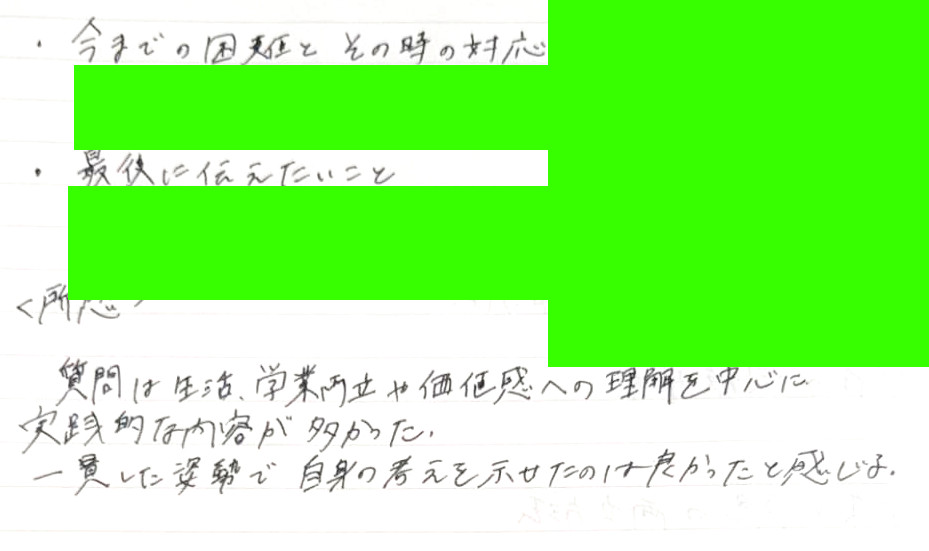 ・今までの困難とその時の対応
・最後に伝えたいこと
<所感>
質問は生活、学業両立や価値感への理解を中心に
実践的な内容が多かった.
一貫した姿勢で自身の考えを示せたのは良かったと感じる.